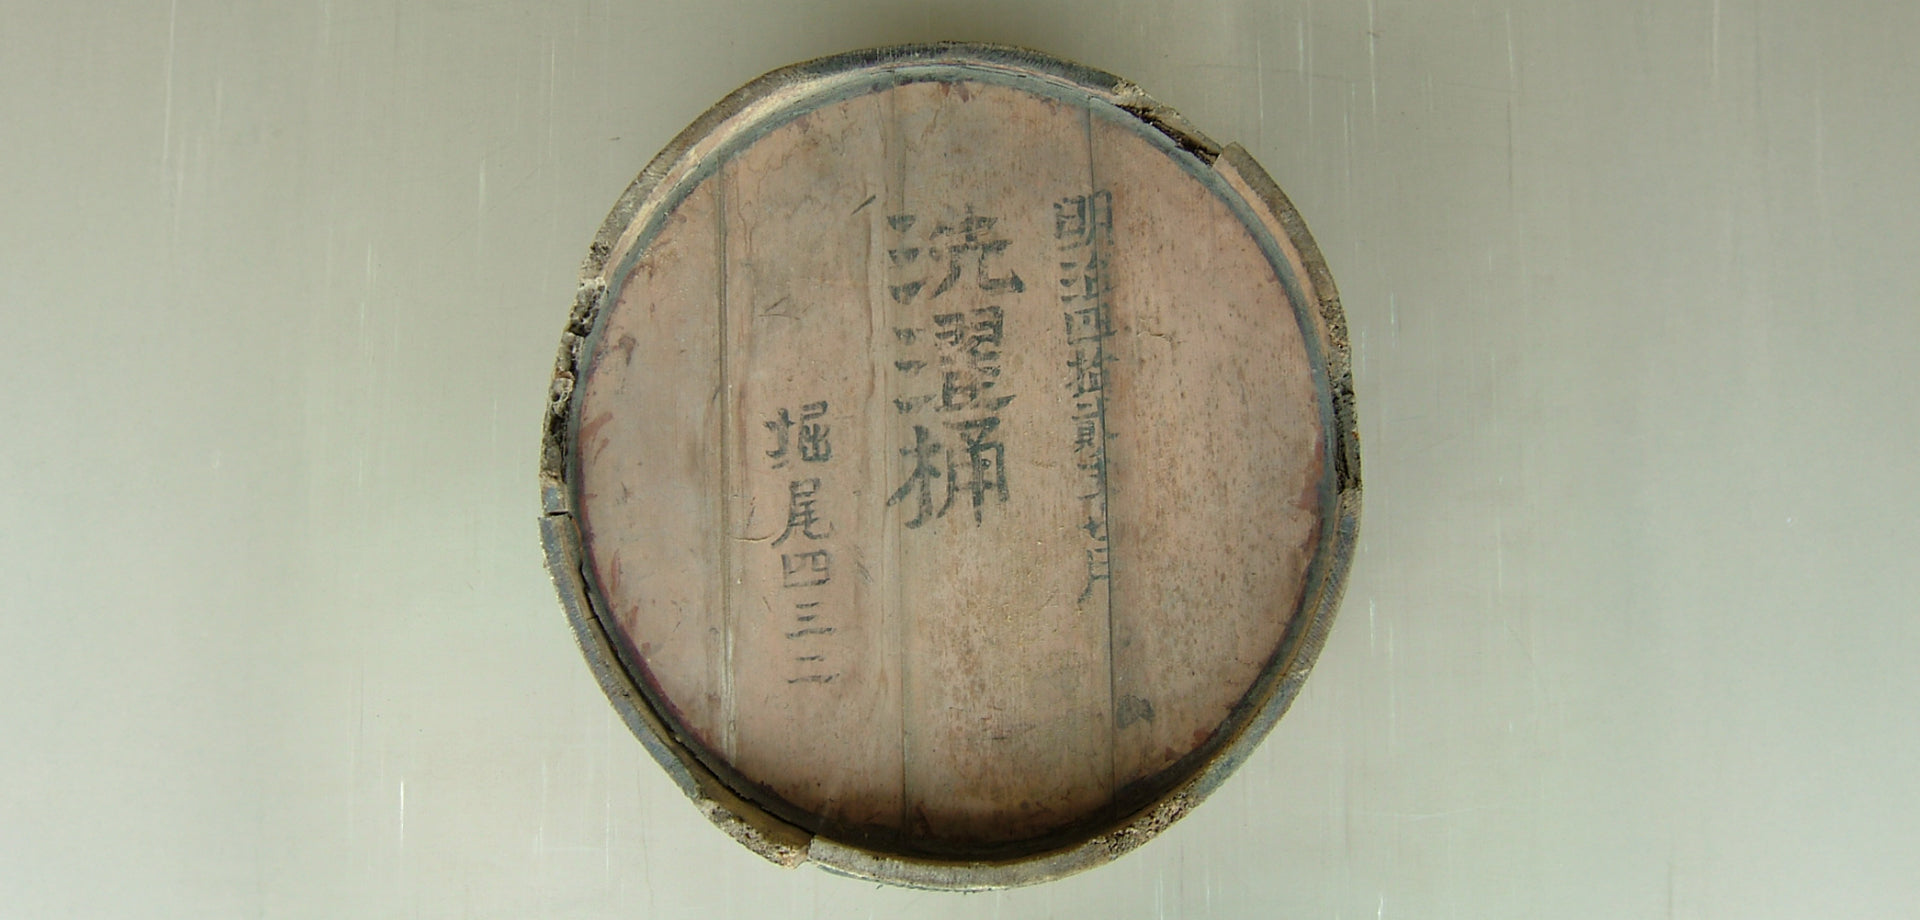 明治四拾貳年七月
洗濯桶
堀尾四三二